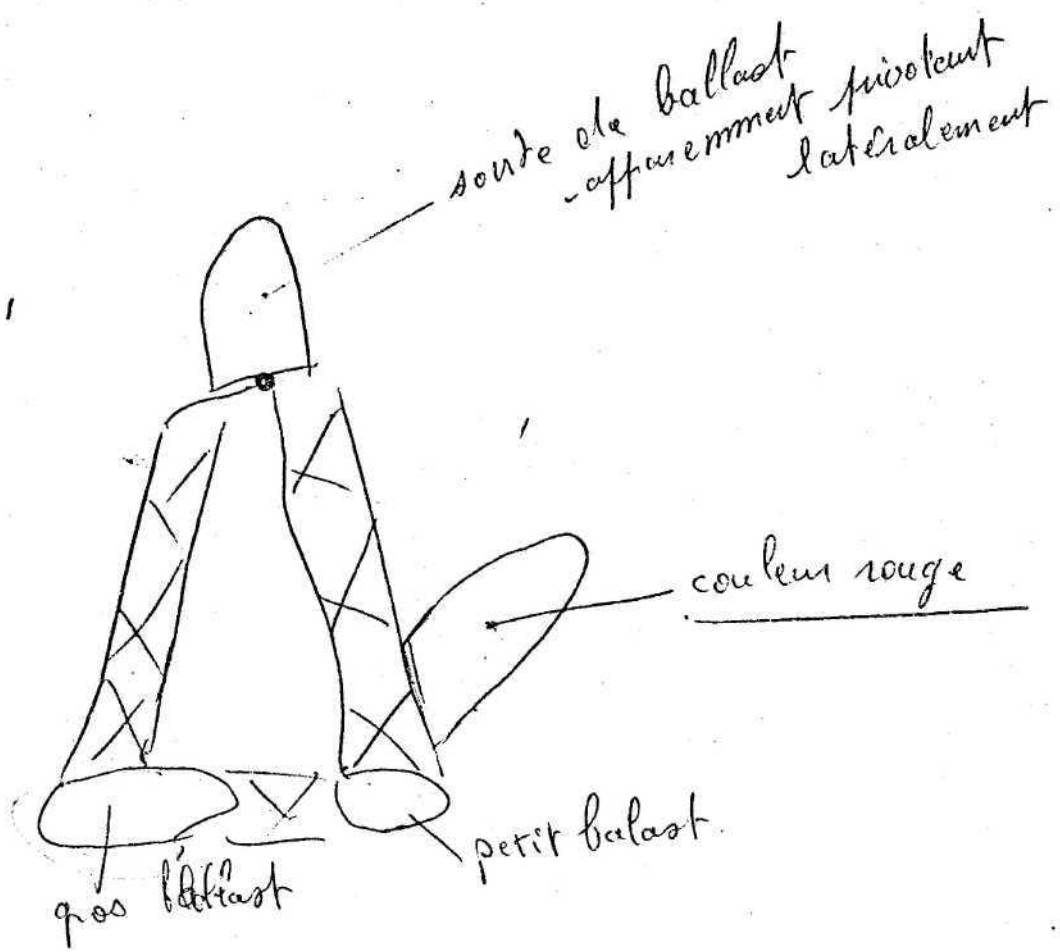 sorte de ballast
apparemment pivotant
latéralement
couleur rouge
petit balast.
gros ballast